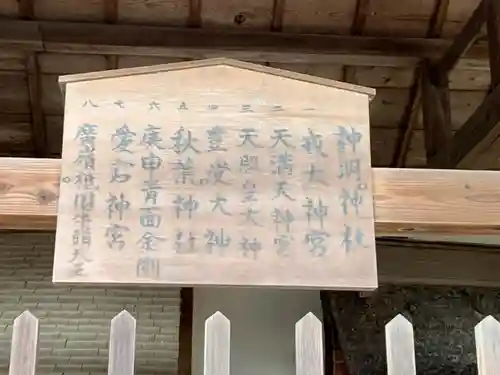 神明神社
一 我大神宮
二 天満天神宮
三 天照皇大神
四 豊受大神
五 秋葉神社
六 庚申青面金剛
七 愛宕神宮
八 祗園牛頭天王